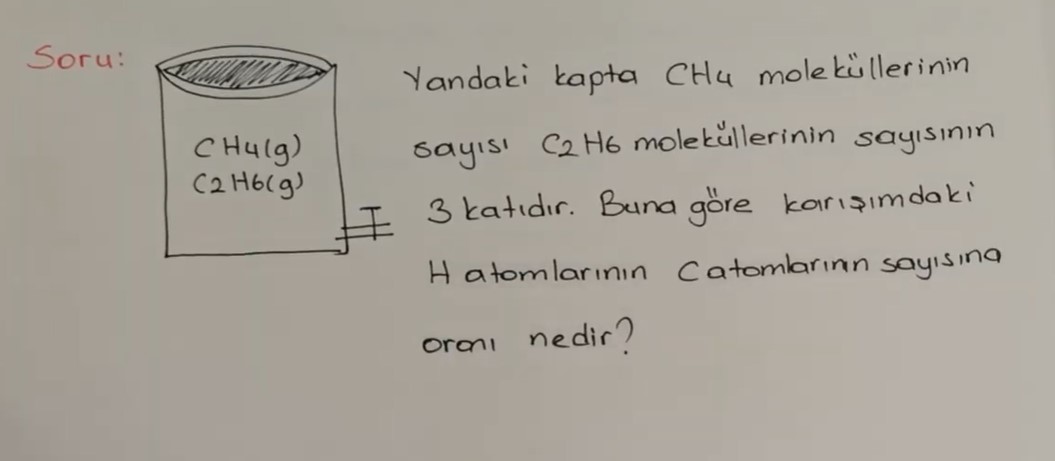 Soru:
CH4(g)
C2H6(g)
Yandaki kapta CH4 moleküllerinin
sayısı C2H6 moleküllerinin sayısının
3 katıdır. Buna göre karışımdaki
H atomlarının C atomlarının sayısına
oranı nedir?